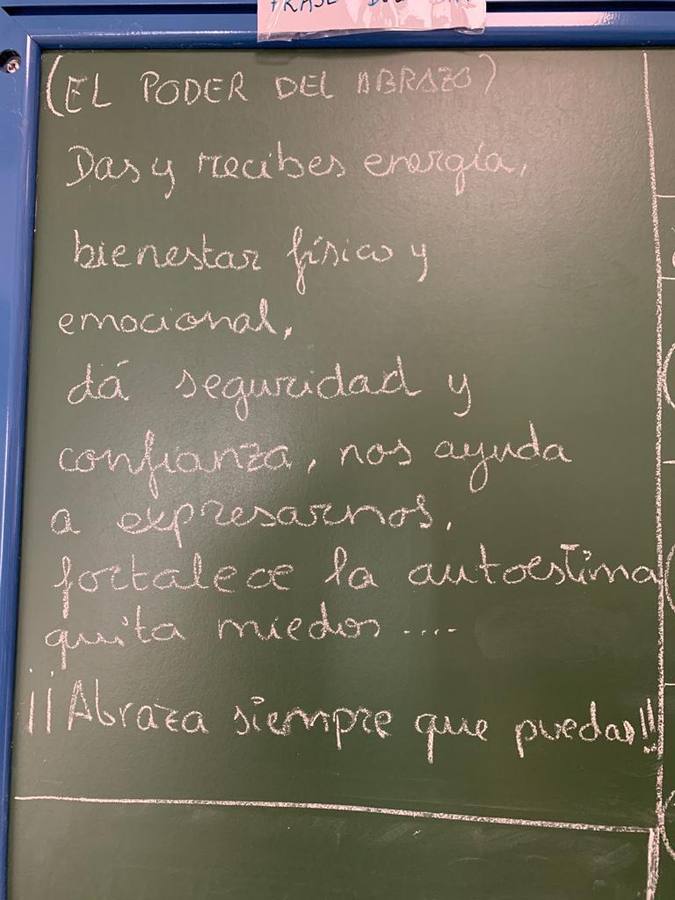 FRASE
(EL PODER DEL ABRAZO)
Das y recibes energía,
bienestar físico y
emocional,
dá seguridad y
confianza, nos ayuda
a expresarnos,
fortalece la autoestima
quita miedos ....
¡¡Abraza siempre que puedas!!